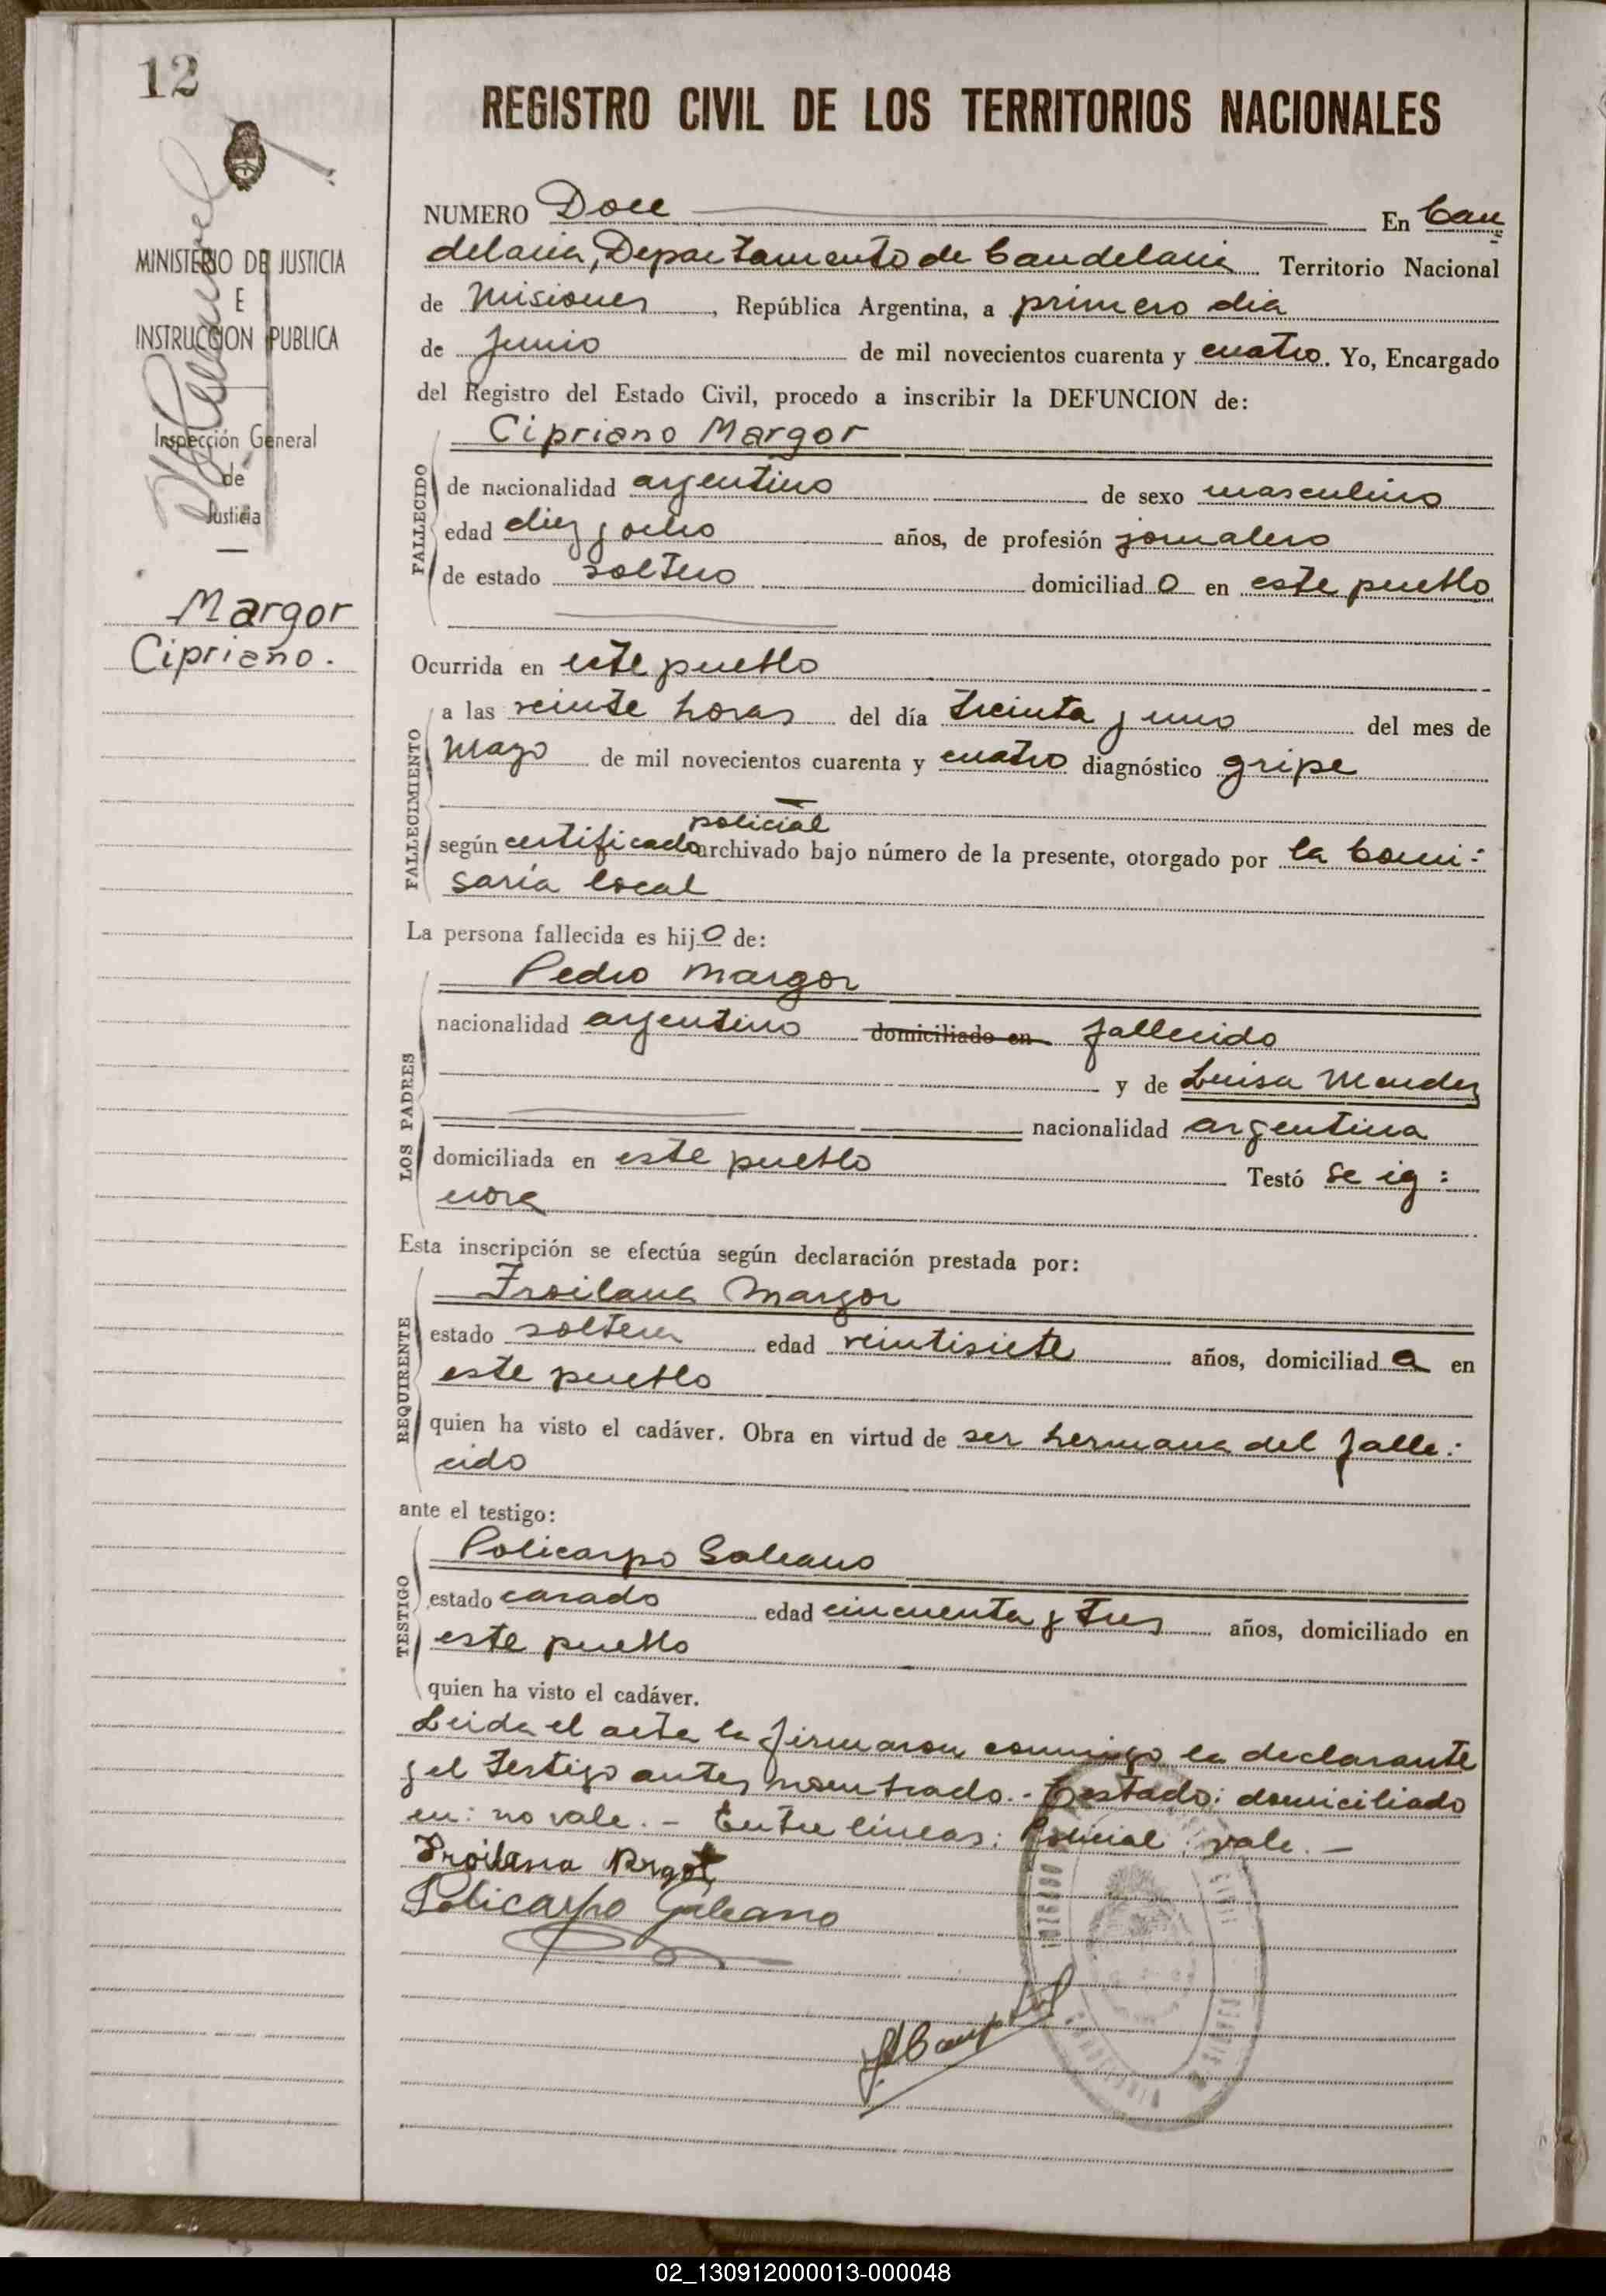 12
REGISTRO CIVIL DE LOS TERRITORIOS NACIONALES
MINISTERIO DE JUSTICIA
E
INSTRUCCION PUBLICA
Inspección General
de
Justicia
Margor
Cipriano.
NUMERO Doce En Can
delaria, Departamento de Candelaria Territorio Nacional
de Misiones, República Argentina, a primero dia
de Junio de mil novecientos cuarenta y cuatro. Yo, Encargado
del Registro del Estado Civil, procedo a inscribir la DEFUNCION de:
Cipriano Margor
FALLECIDO
de nacionalidad argentino de sexo masculino
edad diez y ocho años, de profesión jornalero
de estado soltero domiciliado en este pueblo
Ocurrida en este pueblo
FALLECIMIENTO
a las veinte horas del día treinta y uno del mes de
Mayo de mil novecientos cuarenta y cuatro diagnóstico gripe
policial
según certificado archivado bajo número de la presente, otorgado por la Comi:
saría local
La persona fallecida es hijo de:
LOS PADRES
Pedro Margor
nacionalidad argentino domiciliado en fallecido
y de Luisa Mendez
nacionalidad argentina
domiciliada en este pueblo Testó se ig:
nora
Esta inscripción se efectúa según declaración prestada por:
REQUIRENTE
Froilana Margor
estado soltera edad veintisiete años, domiciliada en
este pueblo
quien ha visto el cadáver. Obra en virtud de ser hermana del falle:
cido
ante el testigo:
TESTIGO
Policarpo Galeano
estado casado edad cincuenta y tres años, domiciliado en
este pueblo
quien ha visto el cadáver.
Leida el acta la firmaron conmigo la declarante
y el testigo antes nombrado.- Testado: domiciliado
en: no vale.- Entre lineas: Policial: vale.-
Froilana
Policarpo Galeano
02_130912000013-000048